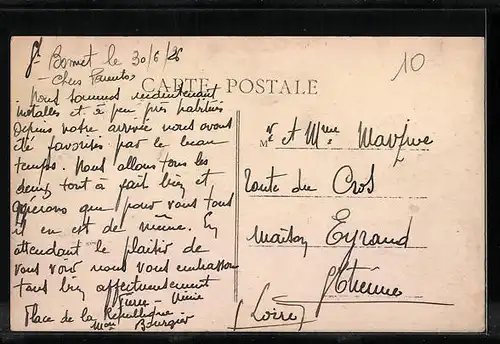 St Bonnet le 30/6/26
10
- Chers Parents
CARTE POSTALE
Nous sommes maintenant
installés et à peu près habitués
Depuis votre arrivée nous avons
été favorisés par le beau
temps. Nous allons tous les
deux tout à fait bien et
espérons que pour vous tous
il en est de même. En
attendant le plaisir de
vous voir nous vous embrassons
tous bien affectueusement
Place de la République
Mon Bourgier
Mr et Mme
Route du Cros
Maison Eyraud
St Etienne
(Loire)